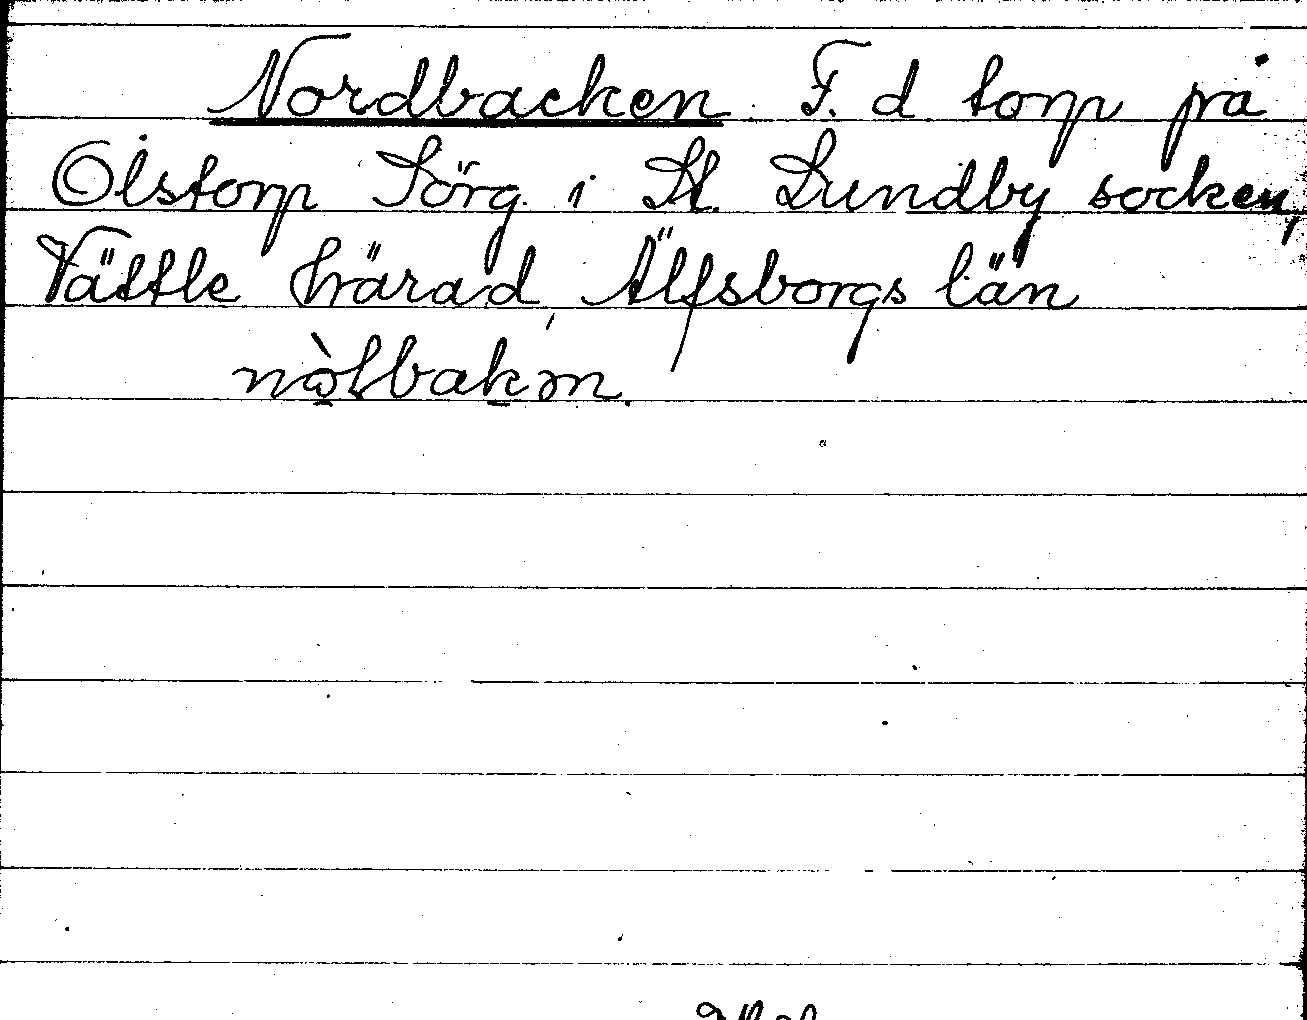 Nordbacken F. d. torp på
Olstorp Sörg. i St. Lundby socken,
Vättle härad, Älfsborgs län
nòlbakən.